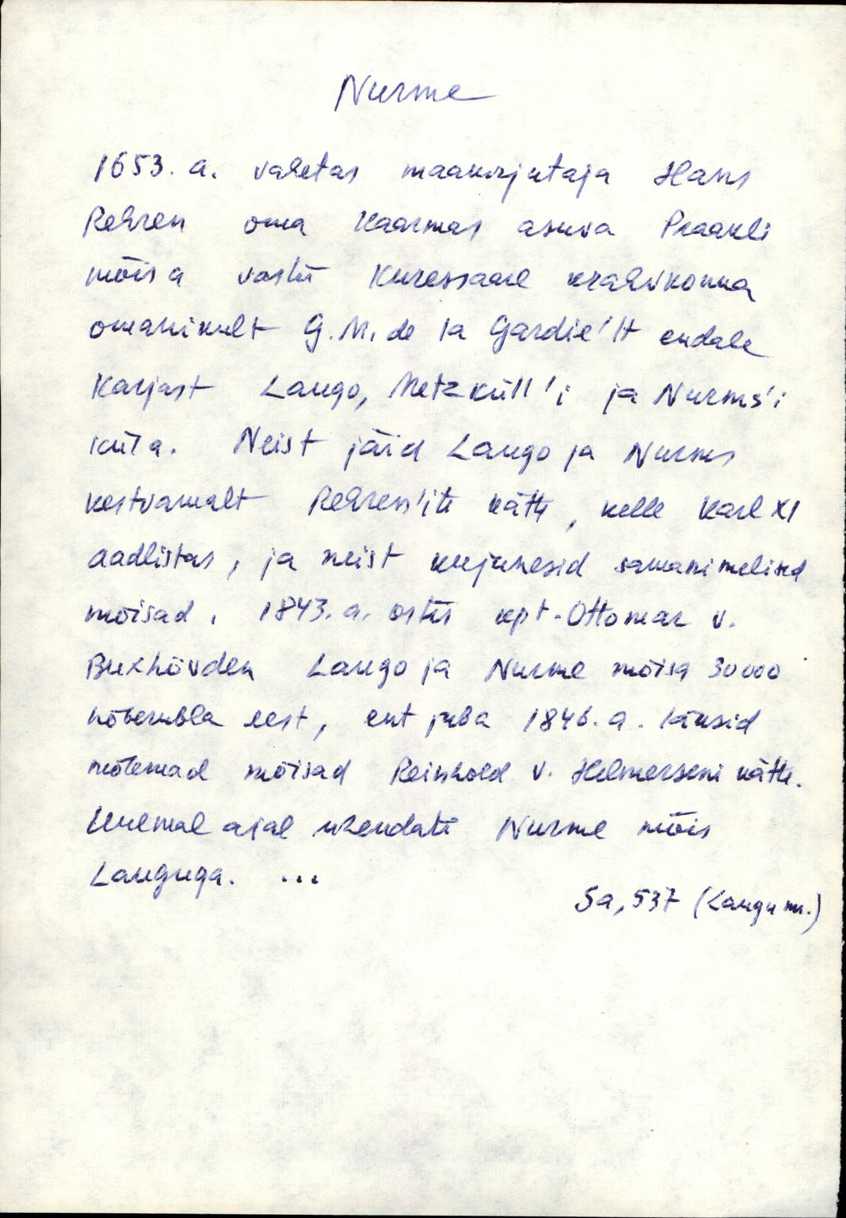 Nurme
1653. a. vahetas maakirjutaja Hans
Rehren oma Kaarmas asuva Praakli
mõisa vastu Kuressaare krahvkonna
omanikult G. M. de la Gardie'lt endale
Karjast Laugo, Metzküll'i ja Nurms'i
küla. Neist jäid Laugo ja Nurms
kestvamalt Rehren'ite kätte, kelle Karl XI
aadlistas, ja neist kujunesid samanimelised
mõisad. 1843. a. ostis kpt. Ottomar v.
Buxhövden Laugo ja Nurme mõisa 30000
hõberubla eest, ent juba 1846. a. läksid
mõlemad mõisad Reinhold v. Helmerseni kätte.
Uuemal ajal ühendati Nurme mõis
Lauguga. ...
Sa, 537 (Laugu m.)